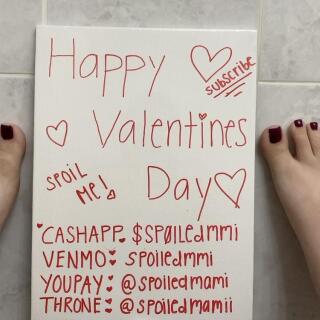 Happy
subscribe
Valentines
SPOIL
ME!
Day
CASHAPP: $SPØILEDMMI
VENMO: spoiledmmi
YOUPAY: @spoiledmami
THRONE: @spoiledmamii